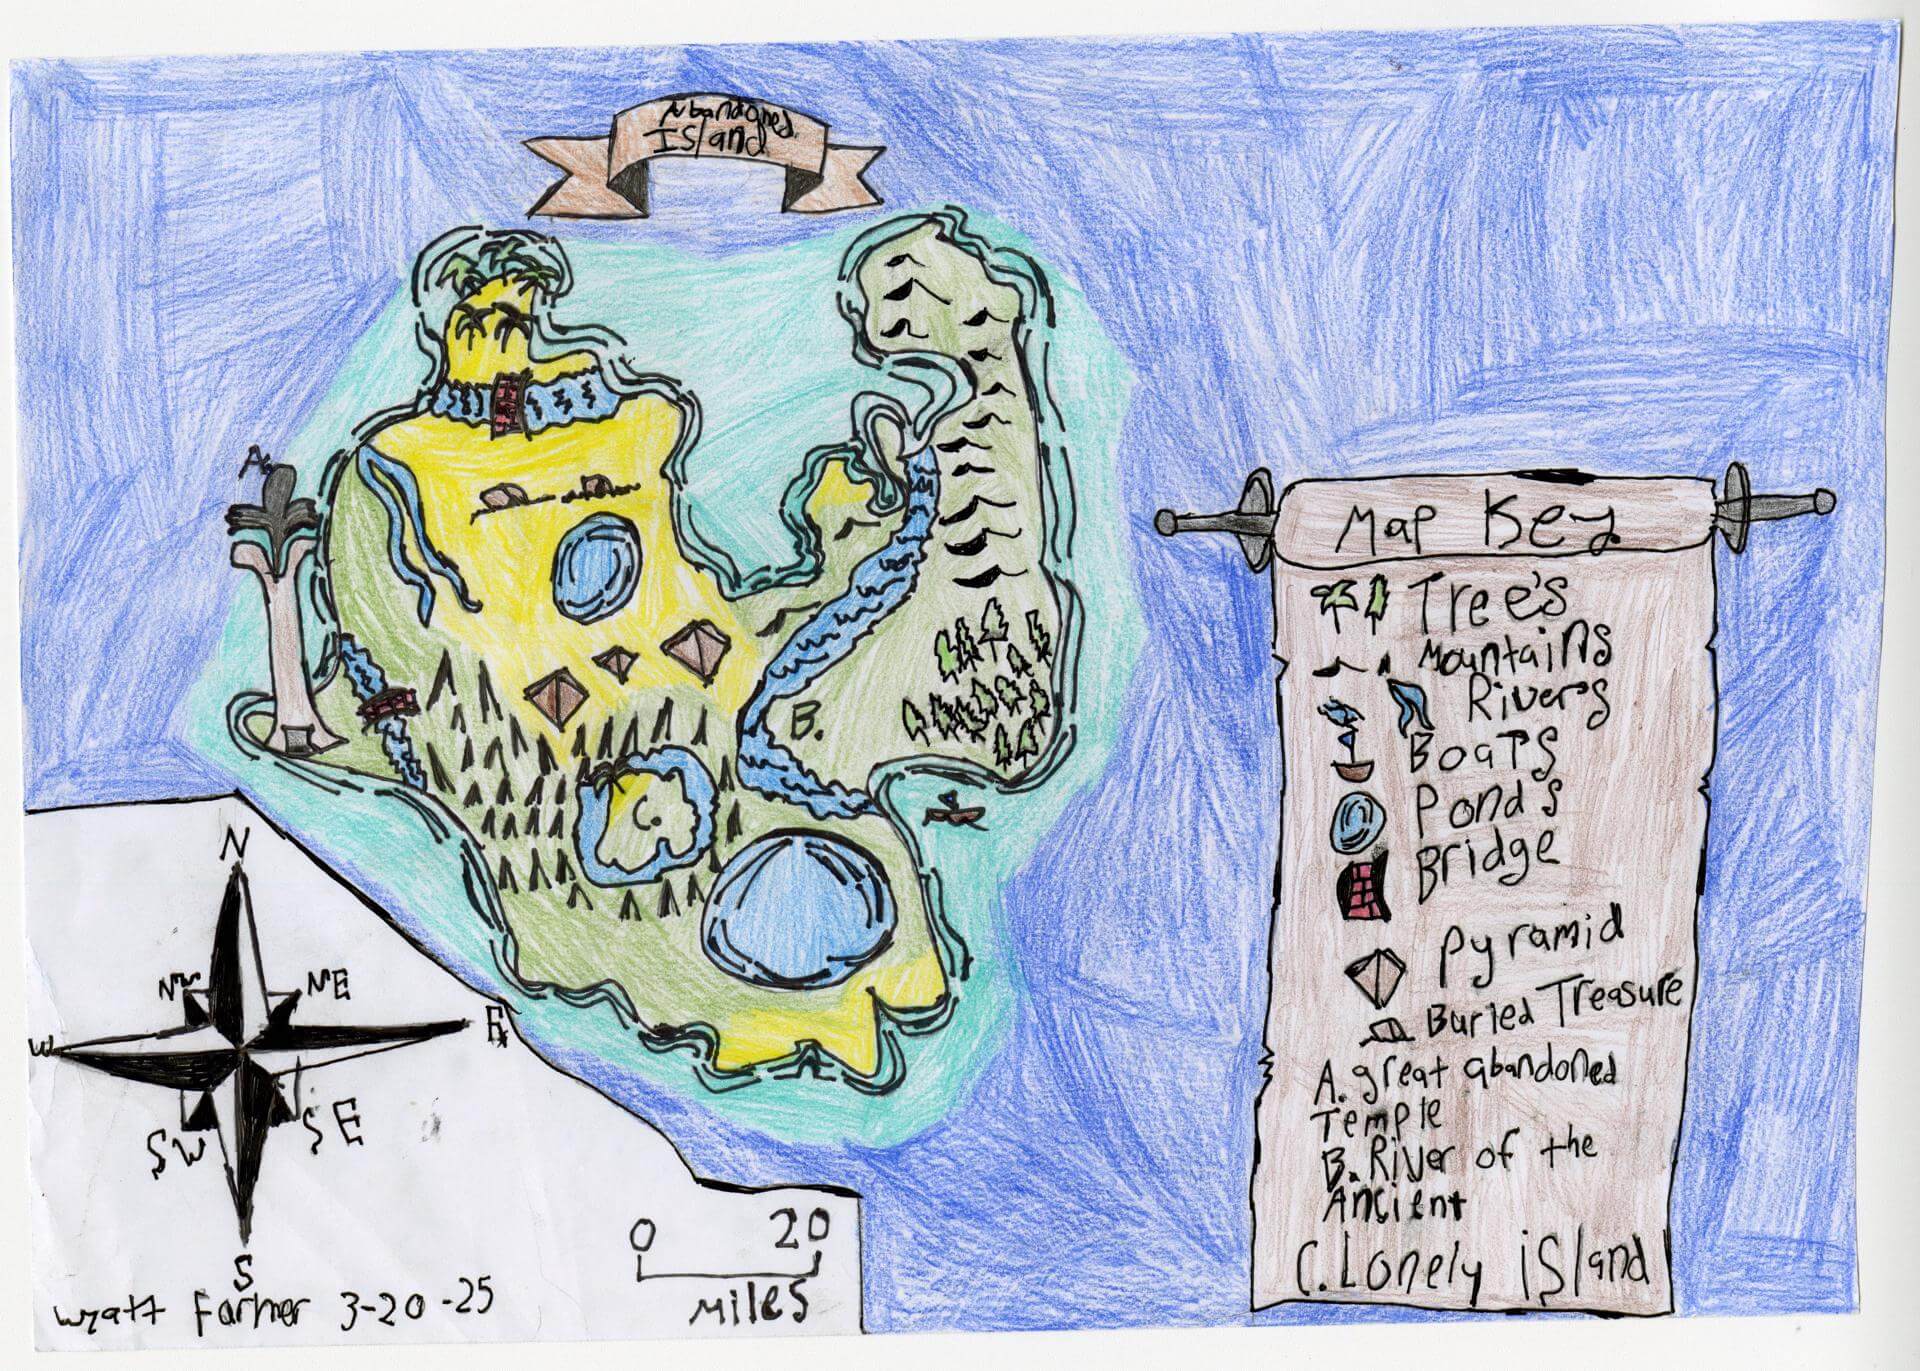 Abandoned
Island
A.
B.
C.
Map Key
Tree's
Mountains
Rivers
Boats
Pond's
Bridge
Pyramid
Buried Treasure
A. great abandoned
Temple
B. River of the
Ancient
C. Lonely island
N
NW
NE
W
E
SW
SE
S
0 20
Miles
Wyatt Farmer 3-20-25